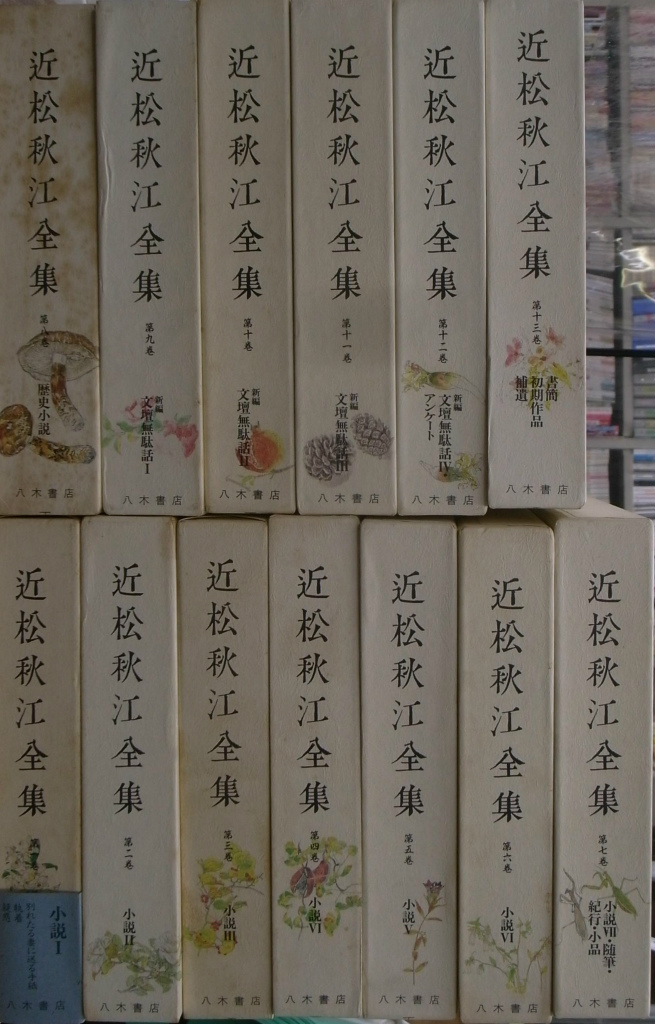 近松秋江全集
第八巻
歴史小説
近松秋江全集
第九巻
新編
文壇無駄話 I
八木書店
近松秋江全集
第十巻
新編
文壇無駄話 II
八木書店
近松秋江全集
第十一巻
新編
文壇無駄話 III
八木書店
近松秋江全集
第十二巻
新編
文壇無駄話 IV・
アンケート
八木書店
近松秋江全集
第十三巻
書簡
初期作品
補遺
八木書店
八木書店
近松秋江全集
小説 I
別れたる妻に送る手紙
執着
疑惑
八木書店
近松秋江全集
第二巻
小説 II
八木書店
近松秋江全集
第三巻
小説 III
八木書店
近松秋江全集
第四巻
小説 VI
八木書店
近松秋江全集
第五巻
小説 V
八木書店
近松秋江全集
第六巻
小説 VI
八木書店
近松秋江全集
第七巻
小説 VII・随筆・
紀行・小品
八木書店